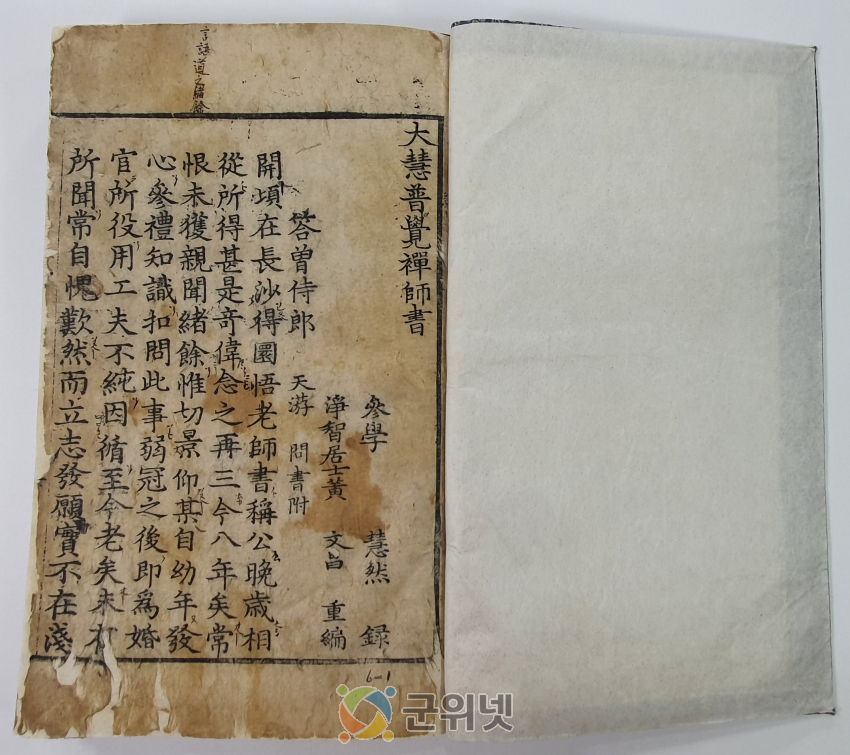 言語道之緒餘
大慧普覺禪師書
叅學 慧然 録
淨智居士黃 文昌 重編
答曾侍郎 天游 問書附
開頃在長沙得圜悟老師書稱公晚歳相
從所得甚是竒偉念之再三今八年矣常
恨未獲親聞緒餘惟切景仰某自幼年發
心叅禮知識扣問此事弱冠之後即爲婚
官所役用工夫不純因循至今老矣未有
所聞常自愧歎然而立志發願實不在淺
6-1
군위넷